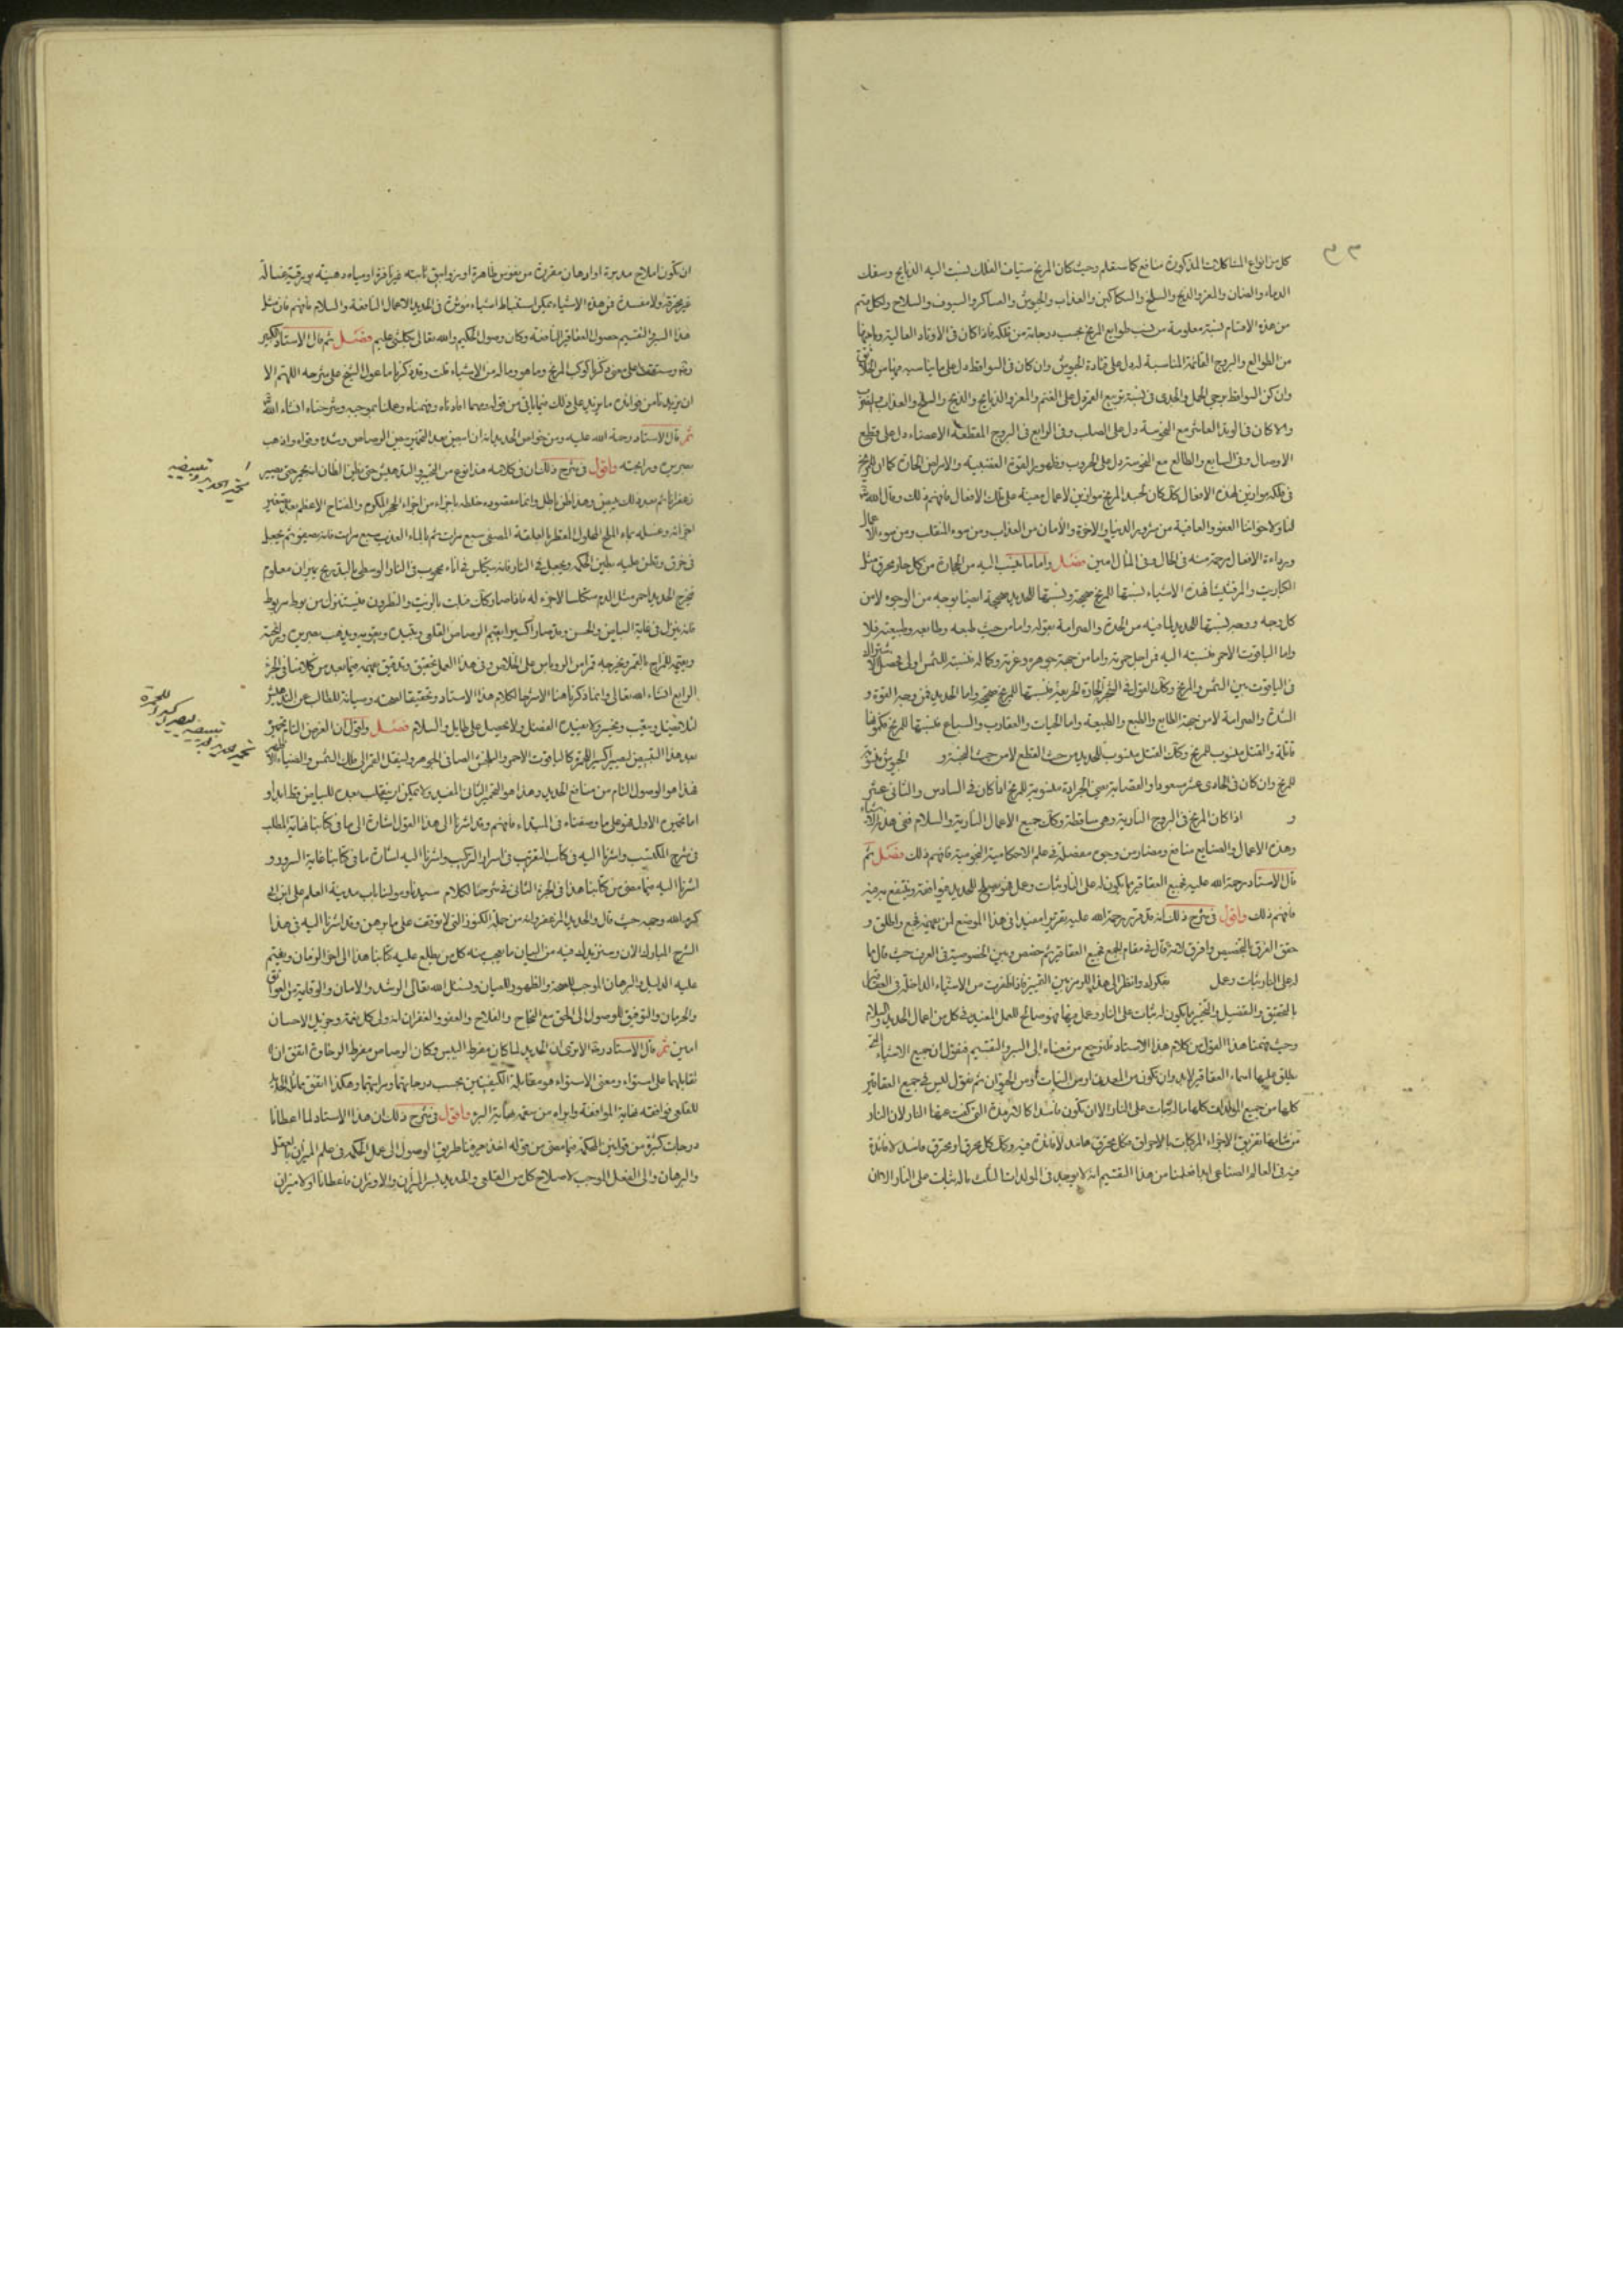 كل من انواع المشاكلات المذكورة منافع كما سنعلم وحيث كان المريخ الفلك نسبت اليه الذبايح وسفك
الدماء والضان والمعز والذبح والسلخ والسكاكين والعذاب والجيوش والعساكر والسيوف والسلاح ولكل قسم
من هذه الاقسام نسبة معلومة من نسب طوايع المريخ بحسب درجاته من فلكه فاذا كان فى الاوتاد العالية
من الطوالع والبروج القائمة المناسبة له دل على قيادة الجيوش وان كان فى السواقط دل على ما يناسبه
وان كان السواقط برجى الحمل والجدى فى نسبة تربيع القمر دل على الغنم والمعز والذبايح والذبح والسلخ والعذاب
والا كان فى الوتد العاشر مع النحوسة دل على الصلب وفى الرابع فى البروج المقطعة الاعضاء دل على قطع
الاوصال وفى السابع والطالع مع النحوسة دل على الحروب وظهور القوة الغضبية والامراض الحادة كما ان للمريخ
فى فلكه موازين لهذه الافعال كذلك كان لجسد المريخ موازين لاعمال معينة على تلك الافعال فافهم ذلك ونسال الله
لنا ولاخواننا العفو والعافية من شرور الدنيا والاخرة والأمان من العذاب ومن سوء المنقلب ومن سوء الاعمال
ورداءة الافعال برحمة منه فى الحال وفى المآل امين فصل واما ما ينسب اليه من الحجارة من كل حار محرق مثل
الكباريت والمرقشيثا فهذه الاشياء نسبتها للمريخ صحيحة ونسبتها للحديد صحيحة ايضا بوجه من الوجوه لا من
كل وجه ووجه نسبتها للحديد لما فيه من الحدة والصرامة بقوله واما من حيث طبعه وطابعه وطبيعته فلا
واما الياقوت الاحمر فنسبته اليه فمن اجل حمرته واما من جهة جوهره وعزته وكماله فنسبته للشمس اولى
فى الياقوت بين الشمس والمريخ وكذلك القول فى الحارة الحريفة فنسبتها للمريخ صحيحة واما الحديد فمن وجه القوة و
الشدة والصرامة لا من جهة الطابع والطبع والطبيعة واما الحيات والعقارب والسباع فنسبتها للمريخ
قاتلة والقتل منسوب للمريخ وكذلك القتل منسوب للحديد من حيث القطع لا من حيث الجيوش
للمريخ وان كان فى الحادى عشر سعودا والقصابة منسوبة للمريخ اذا كان فى السادس والثانى عشر
و اذا كان المريخ فى البروج النارية وهى ساقطة وكذلك جميع الاعمال النارية والسلام
وهذه الاعمال والصنايع منافع ومضار من وجوه مفصلة فى علم الاحكامية النجومية فافهم ذلك فصل ثم
قال الاستاد رحمة الله عليه فجميع العقاقير ما يكون له على النار ثبات وعمل فهو صالح للحديد موافقته وينتفع به
فافهم ذلك واقول فى شرح ذلك انه قد قرر رحمة الله عليه تقريرا مفيدا فى هذا الموضع لمن يعيه فجمع واطلق و
حقق الفرق بالتخصيص وافرق لانه قال فى مقام الجمع فجميع العقاقير ثم خصص وبين الخصوصية فى الفرق حيث قال ما
له على النار ثبات وعمل وانظر الى هذا
بالتحقيق والتفصيل والتخيير ما يكون له ثبات على النار وعمل فيها فهو صالح للعمل المفيد فى كل من اعمال الحديد والسلام
وحيث فهمنا هذا القول من كلام هذا الاستاد فلنرجع من معناه الى السبر والتقسيم فنقول ان جميع الاشياء التى
يطلق عليها اسماء العقاقير لابد وان تكون من المعدن او من النبات او من الحيوان ثم نقول ليس فى جميع العقاقير
كلها من جميع المولدات كلها ما له ثبات على النار الا ان يكون فاسدا كالارمدة التى كفت عنها النار لان النار
من شانها تفريق الاجزاء المركبات بالاحراق فكل محترق فاسد لا فائدة فيه وكذلك كل محرق او محترق فاسد لا فائدة
فيه فى العالم الصناعى ابدا فعلمنا من هذا التقسيم انه لا يوجد فى المولدات الثلث ما له ثبات على النار الا ان
ان تكون املاح مدبرة او ادهان مقررة من نفوس طاهرة او زوابيق ثابتة غير نافرة او مياه دهنية بورقية غسالة
غير محرقة ولا مفسدة فمن هذه الاشياء يمكن استنباط اشياء مؤثرة فى الحديد الاعمال النافعة والسلام فافهم فان مثل
هذا السبر فى التقسيم حصول العقاقير النافعة وكان وصول الحكيم والله تعالى بكل شئ عليم فصل ثم قال الاستاد الكبير
وقد وستقف على معنى ذكرنا كوكب المريخ وما هو وما له من الاشياء قلت وقد ذكرنا ما عول الشيخ على شرحه اللهم الا
ان يزيدنا من فوائده ما يزيد على ذلك فيما ياتى من قوله ومهما افادناه وفهمناه وعلمناه بموجبه وشرحناه انشاء الله
ثم قال الاستاد رحمة الله عليه ومن خواص الحديد انه ان ابيض بعد التحمير بيض الرصاص وشده وقواه واذهب
صريره ورايحته واقول فى شرح ذلك ان فى كلامه هذا نوع من التخيير والتدهيش حتى يظن الظان انه يحمر حتى يصير
زعفرانا ثم بعد ذلك يبيض وهذا ظن باطل وانما مقصوده خلطه باجزاء من اجزاء الحجر المكرم والمفتاح الاعظم
اجزائه وغسله بماء الملح المحلول المقطر بالعلقة المصفى سبع مرات ثم بالماء العذب سبع مرات فانه يصفو ثم يجعل
فى خرق وتطين عليه بطين الحكمة ويجعل فى النار فانه يتكلس فى اناء مجرب فى النار الوسطى بالتدريج بميزان معلوم
فيخرج الحديد احمر مثل الدم متكلسا لا جزء له فاذا صار كذلك فليت بالزيت والنطرون فيستنزل من بوط مربوط
فانه ينزل فى غاية البياض والحسن وقد صار اكسيرا يقيم الرصاص القلعى ويشده ويقويه ويذهب صريره ورايحته
ويقيمه للمزاج بالقمر ويخرجه قمرا من الروباص على الخلاص وفى هذا العمل تحقيق وتدقيق نبينه فيما بعد من كلامنا فى الجزء
الرابع انشاء الله تعالى وانما ذكرنا هنا الاشرحا لكلام هذا الاستاد وتحقيقا لصحته وصيانة للطالب عن التدهيش
لئلا يضل ويتعب ويخسر ولا يفيده العضل ولا يحصل على طايل والسلام فصل واقول ان الغرض التام تحمير
بعد هذا التبييض ليصير اكسير الحمرة كالياقوت الاحمر والجنس الصافى الجوهر ولينقل القمر الى فلك الشمس والضياء
فهذا هو الوصول التام من منافع الحديد وهذا هو التحمير الثانى المفيد ولا يمكن ان ينقلب بعده للبياض قط ابدا و
اما تحميره الاول فهو على ما وصفناه فى المبتداء فافهم وقد اشرنا الى هذا القول اشارة الى ما فى كتابنا نهاية المطلب
فى شرح المكتسب واشرنا اليه فى كتاب التقريب فى اسرار التركيب واشرنا اليه اشارة ما فى كتابنا غاية السرور و
اشرنا اليه فيما مضى من كتابنا هذا فى الجزء الثانى فى شرحنا لكلام سيدنا ومولانا باب مدينة العلم على ابن ابى
كرم الله وجهه حيث قال والحديد المزعفر وانه من جملة الكنوز التى لا توقفت على ما برهن وقد اشرنا اليه فى هذا
الشرح المبارك الان وسنزيدك فيه من البيان ما يعجب منه كل من يطلع عليه كتابنا هذا الى اخر الزمان ويقيم
عليه الدليل والبرهان الموجب للصحة والظهور والعيان ونسئل الله تعالى الرشد والامان والوقاية من العوائق
والحرمان والتوفيق للوصول الى الحق مع النجاح والفلاح والعفو والغفران انه ولى كل نعمة وجزيل الاحسان
امين ثم قال الاستاد رحمه الا ترى ان الحديد لما كان مفرط اليبس وكان الرصاص مفرط الرخاوة اتفق ان
تقابلهما على استواء ومعنى الاستواء هو مقابلة الكيفيتين بحسب درجاتهما ومراتبهما وهكذا اتفق مقابلة الحديد
للقلعى فوافقه غاية الموافقة وابراه من سقمه غاية البرء واقول فى شرح ذلك ان هذا الاستاد لما اعطانا
درجات كثيرة من قوانين الحكمة فيما مضى من قوله اخذ يعرفنا طريق الوصول الى عمل الحكمة فى علم الميزان بالعقل
والبرهان والى الفعل الموجب لاصلاح كل من القلعى والحديد بسر الميزان والاوزان فاعطانا اولا ميزان
تحمير الحديد وتبييضه
تحمير الحديد بعد تبييضه ليصير اكسير للحمرة